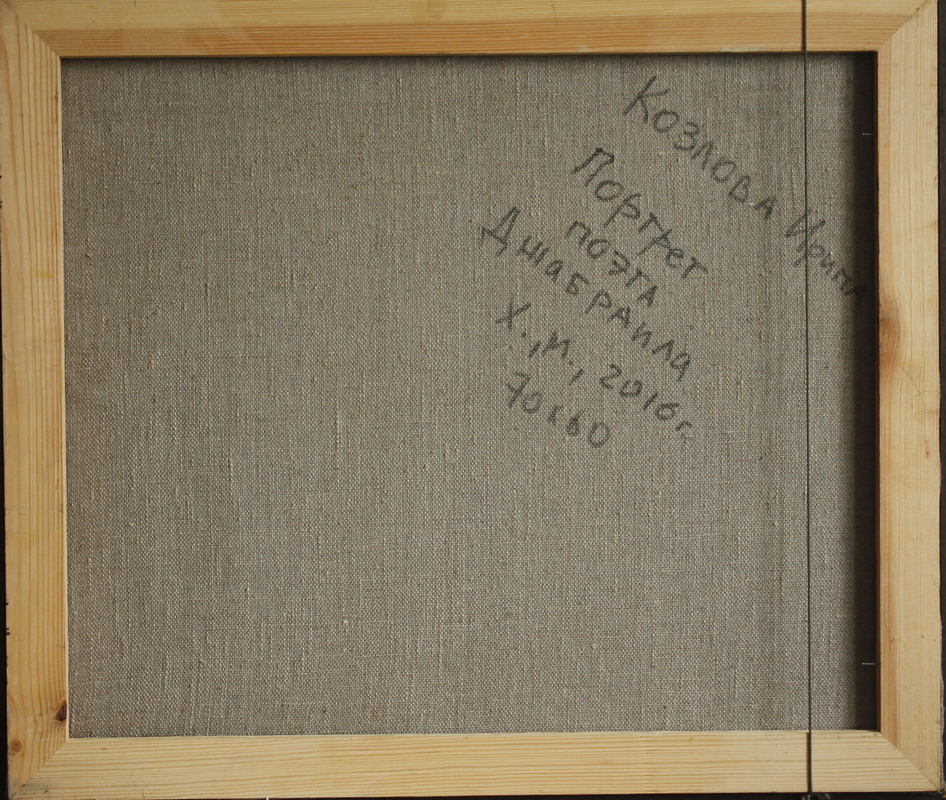 Козлова Ирина
Портрет
поэта
Джабраила
Х., м., 2016 г.
70х60